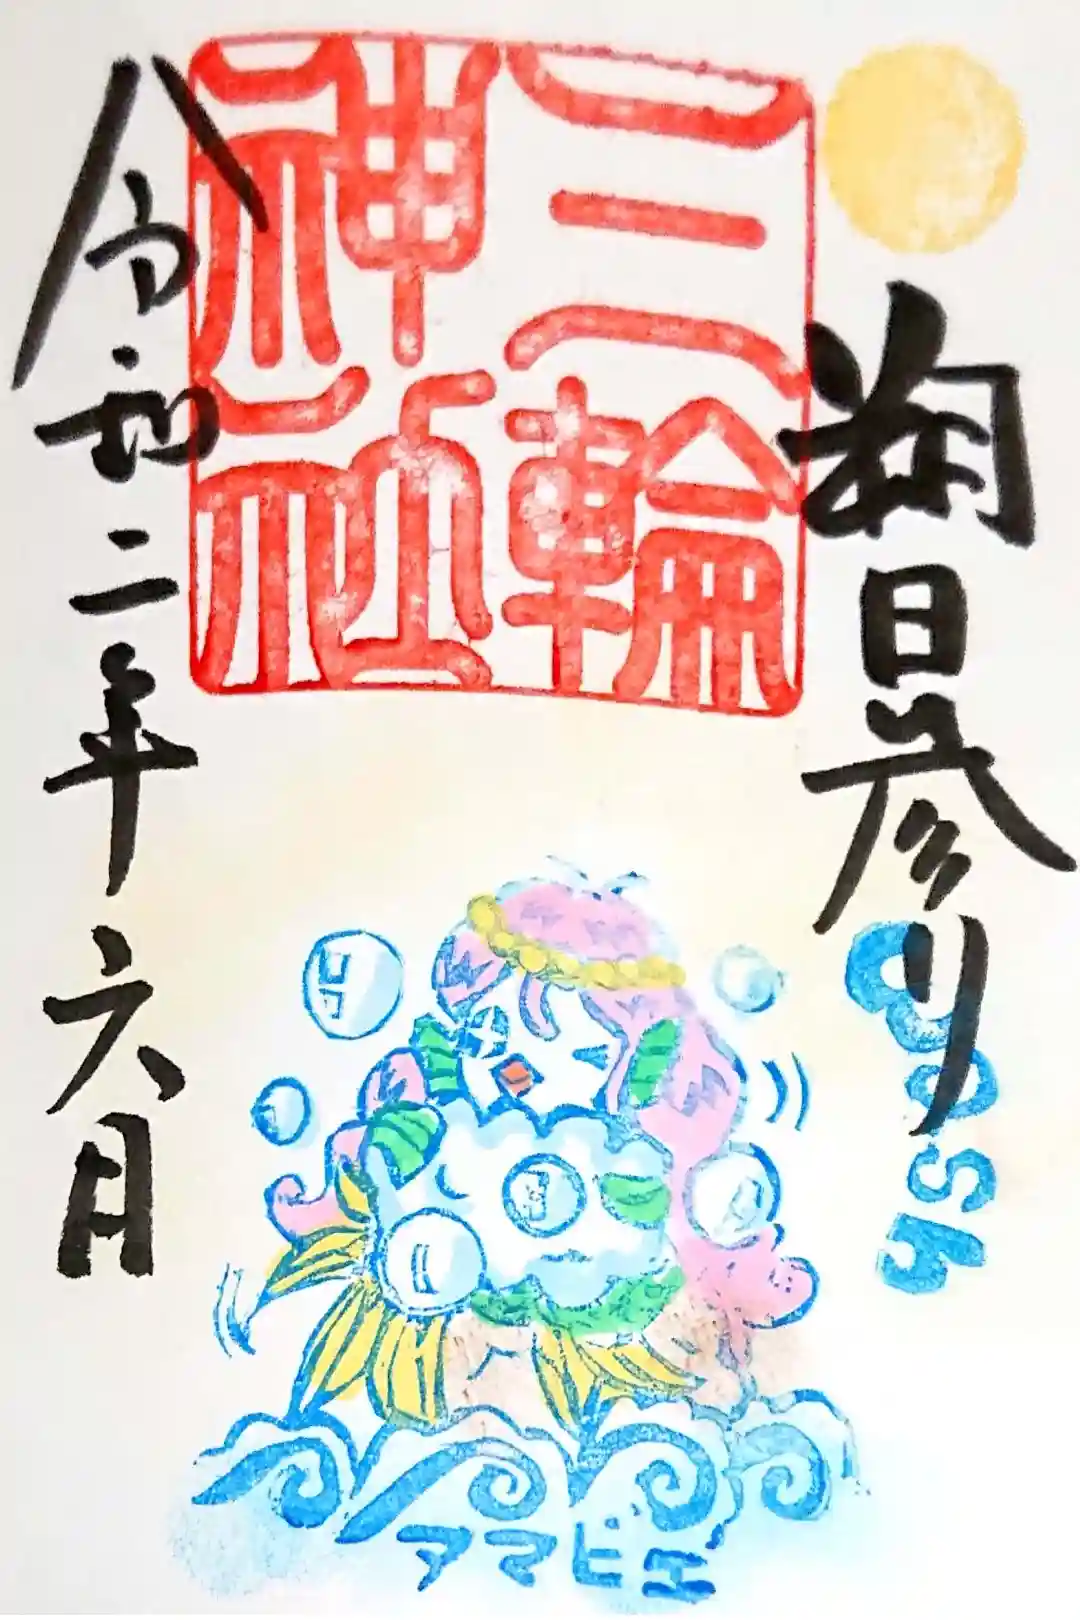 朔日参り
三輪
神社
令和二年六月
Wash
アマビエ